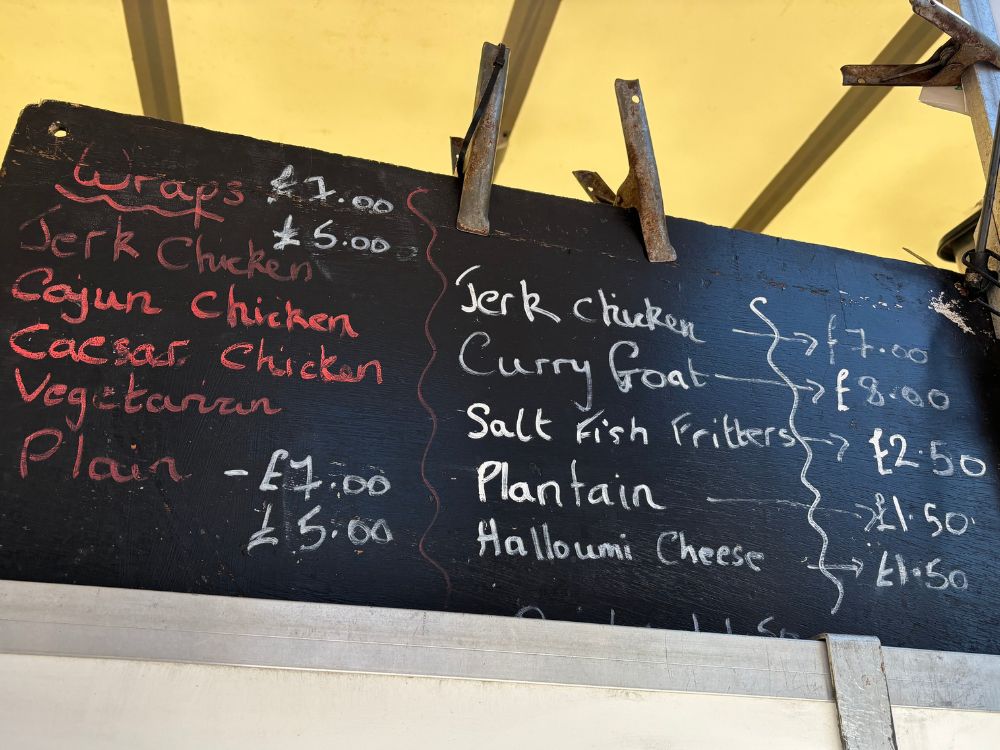 Wraps £7.00
£5.00
Jerk Chicken
Cajun Chicken
Caesar Chicken
Vegetarian
Plain - £7.00
£5.00
Jerk chicken → £7.00
Curry Goat → £8.00
Salt Fish Fritters → £2.50
Plantain → £1.50
Halloumi Cheese → £1.50